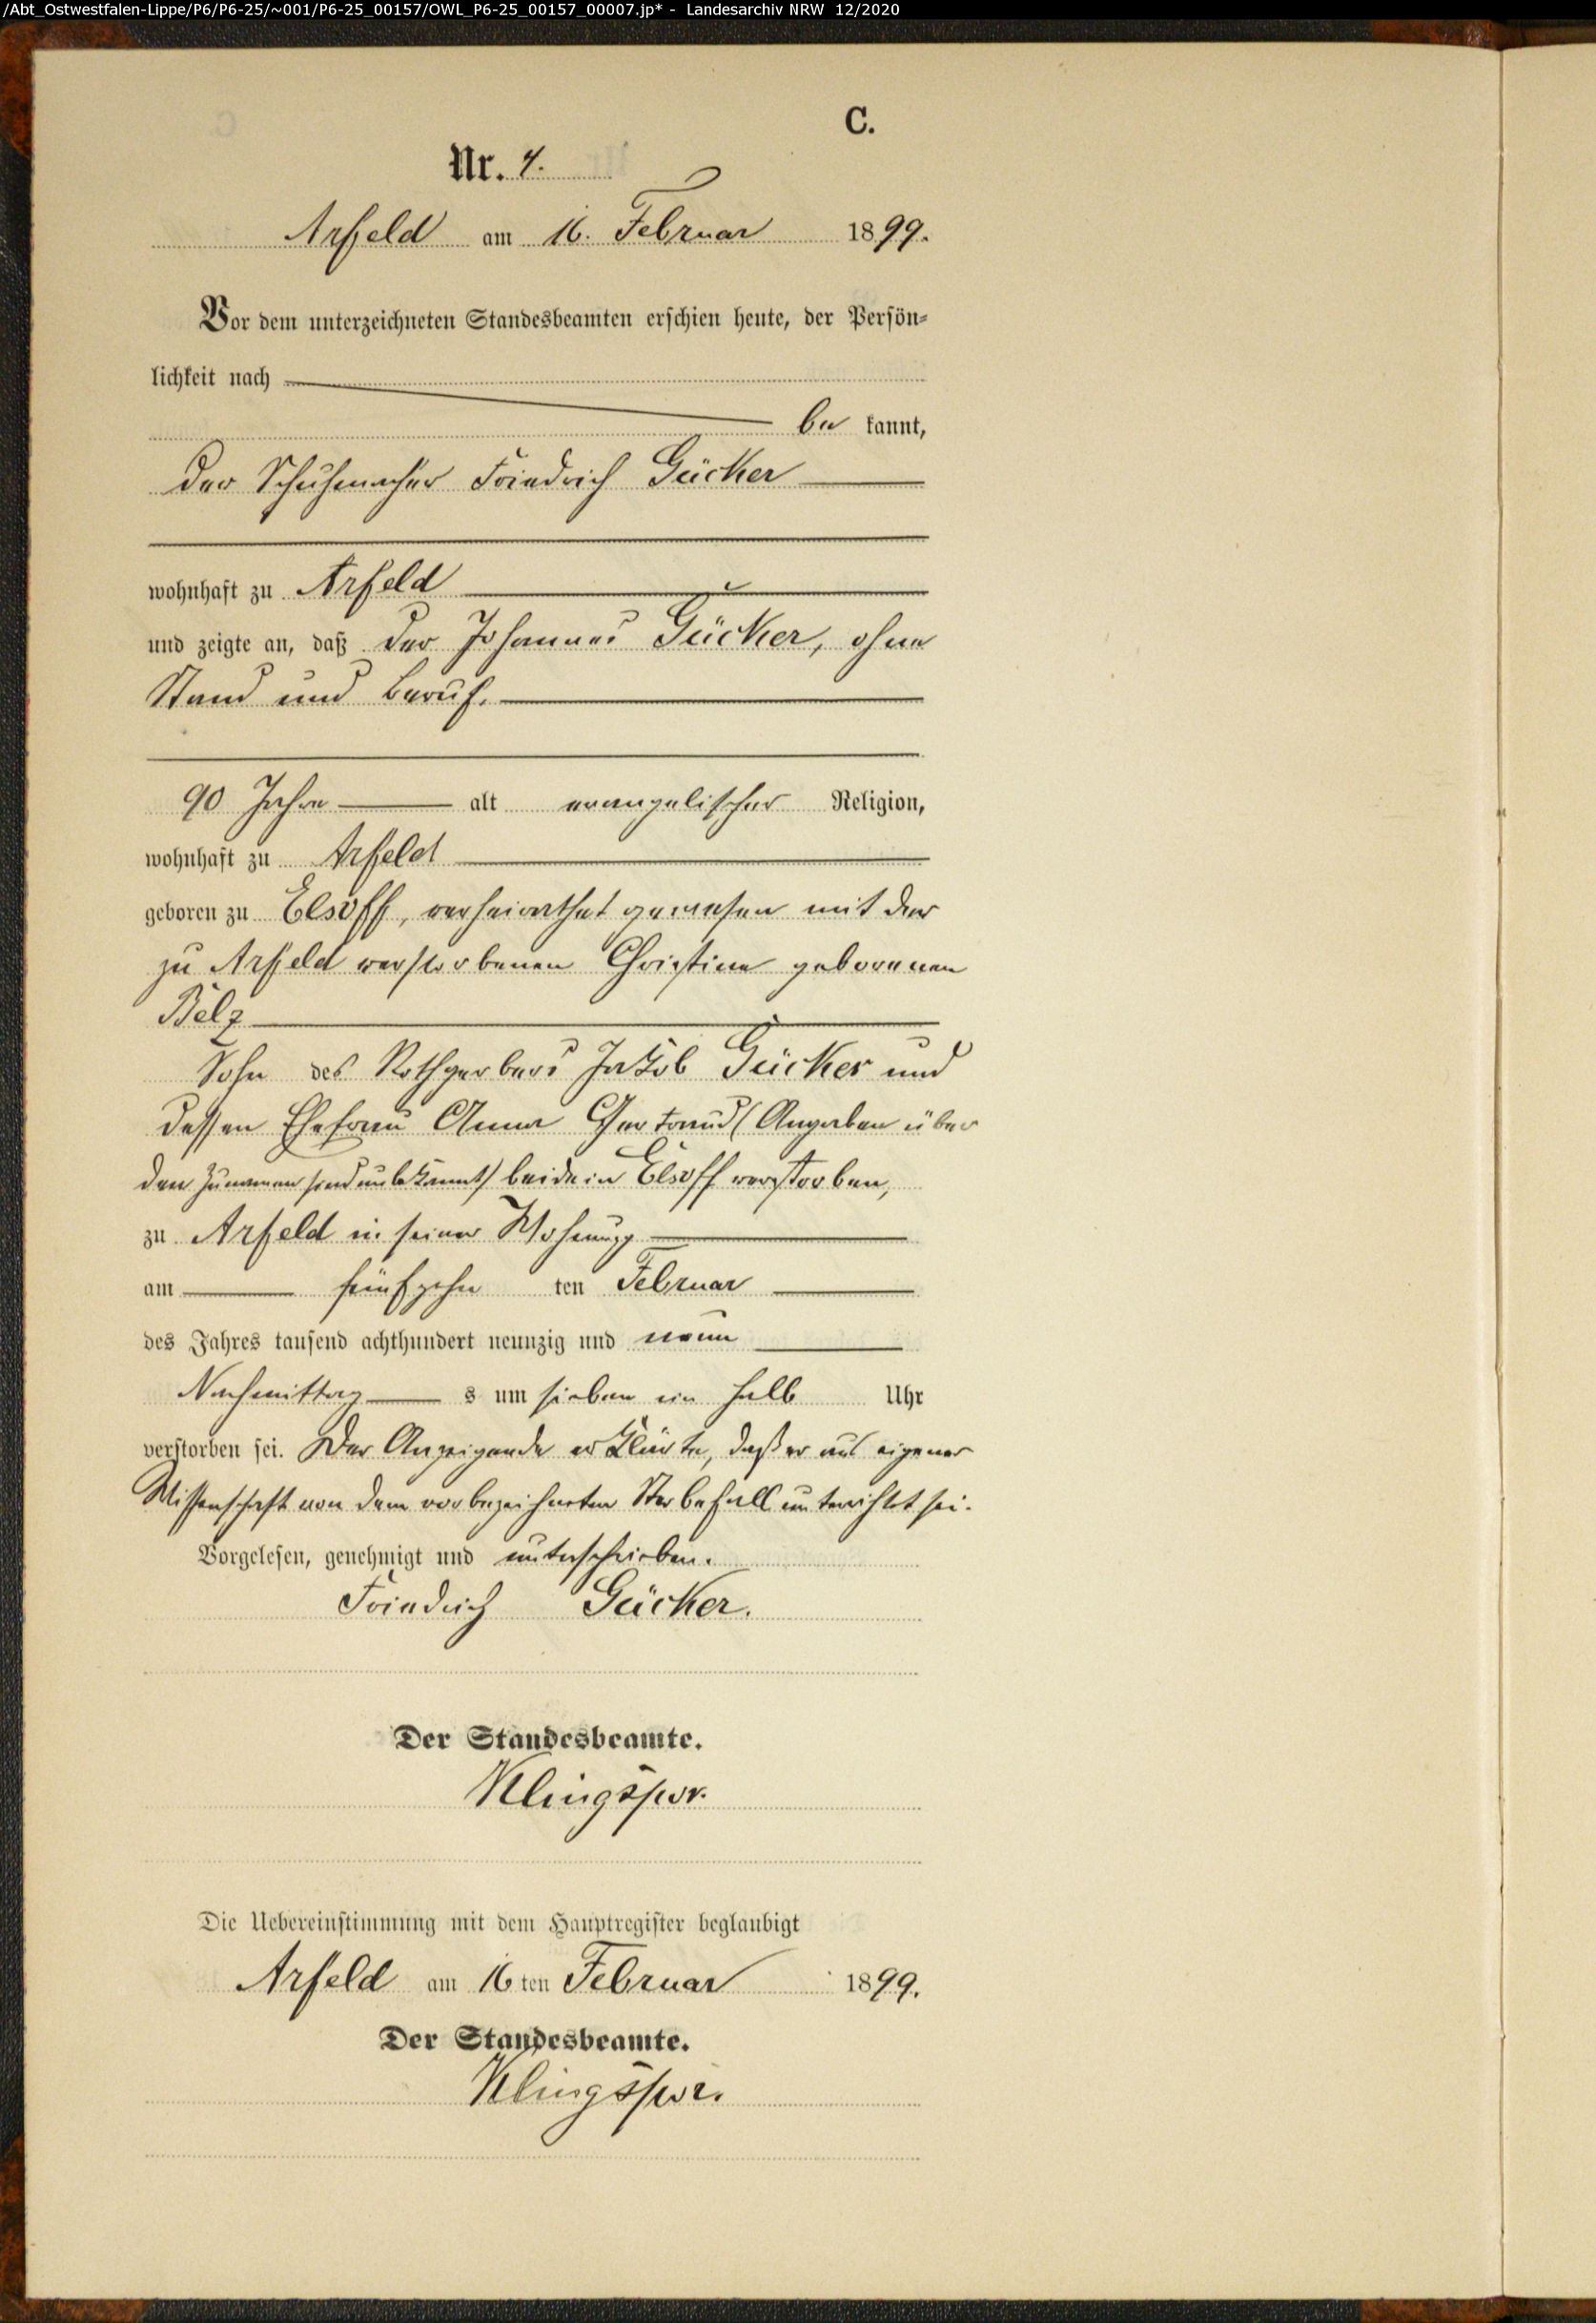 /Abt_Ostwestfalen-Lippe/P6/P6-25/~001/P6-25_00157/OWL_P6-25_00157_00007.jp* - Landesarchiv NRW 12/2020
C.
Nr. 4.
Arfeld am 16. Februar 1899.
Vor dem unterzeichneten Standesbeamten erschien heute, der Persön-
lichkeit nach
be kannt,
der Schuhmacher Friedrich Gücker
wohnhaft zu Arfeld
und zeigte an, daß der Johannes Gücker, ohne
Stand und Beruf,
90 Jahre alt evangelischer Religion,
wohnhaft zu Arfeld
geboren zu Elsoff, verheirathet gewesen mit der
zu Arfeld verstorbenen Christine geborenen
Belz
Sohn des Rothgerbers Jakob Gücker und
dessen Ehefrau Anna Gertraud (Angaben über
den Zunamen sind unbekannt) beide in Elsoff verstorben,
zu Arfeld in seiner Wohnung
am fünfzehn ten Februar
des Jahres tausend achthundert neunzig und neun
Nachmittag s um sieben ein halb Uhr
verstorben sei. Der Anzeigende erklärte, daß er aus eigener
Wissenschaft von dem vorbezeichneten Sterbefall unterrichtet sei.
Vorgelesen, genehmigt und unterschrieben.
Friedrich Gücker.
Der Standesbeamte.
Klingspor.
Die Uebereinstimmung mit dem Hauptregister beglaubigt
Arfeld am 16 ten Februar 1899.
Der Standesbeamte.
Klingspor.